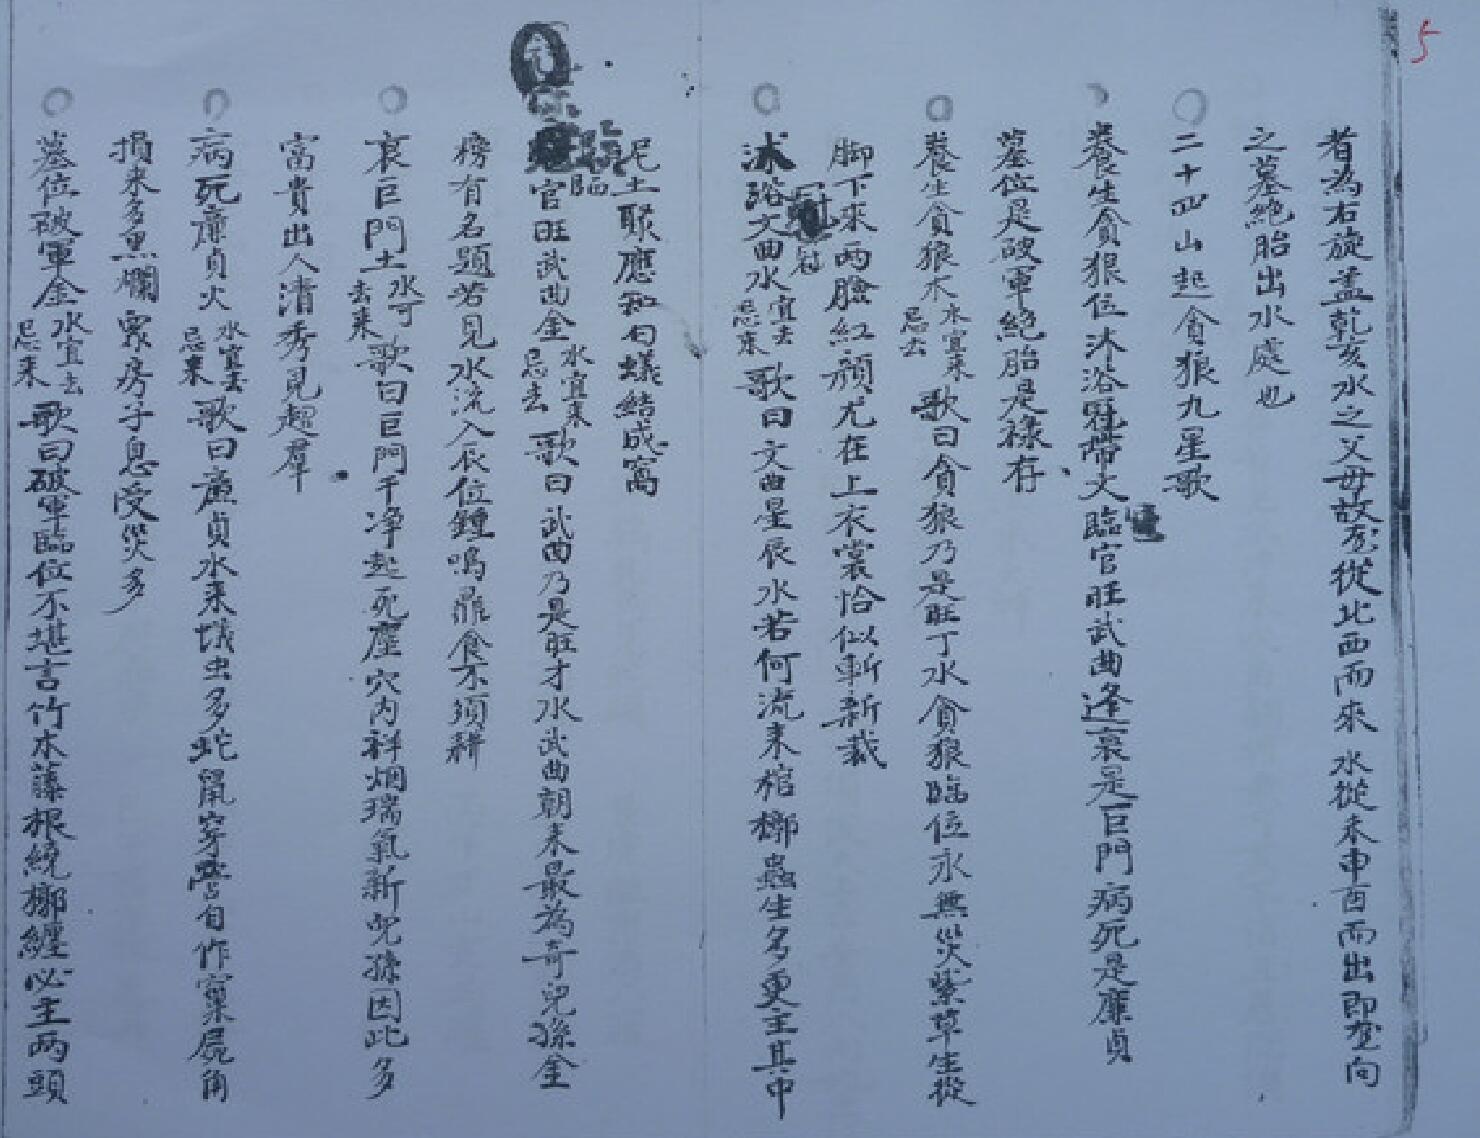 5
者為右旋盖乾亥水之父母故至從北西而來水從未申酉而出即至向
之墓絶胎出水處也
二十四山起貪狼九星歌
養生貪狼位沐浴冠帶文臨官旺武曲逢衰是巨門病死是廉貞
墓位是破軍絶胎是祿存
養生貪狼木水宜來忌去歌曰貪狼乃是旺丁水貪狼臨位永無災紫草生從
脚下來兩臉紅顔尤在上衣裳恰似斬新裁
沐浴冠帶文曲水宜去忌來歌曰文曲星辰水若何流來棺槨蟲生多更主其中
泥土聚應知白蟻結成窩
臨官旺武曲金水宜來忌去歌曰武曲乃是旺才水武曲朝來最為奇兒孫金
榜有名題若見水流入辰位鍾鳴鼎食不須耕
衰巨門土水可去來歌曰巨門干净起死塵穴内祥烟瑞氣新兒孫因此多
富貴出人清秀見超羣
病死廉貞火水宜去忌來歌曰廉貞水來蟻虫多蛇鼠穿營自作窠屍角
損來多黑爛家房子息受災多
墓位破軍金水宜去忌來歌曰破軍臨位不堪言竹木藤根繞槨纏必主兩頭